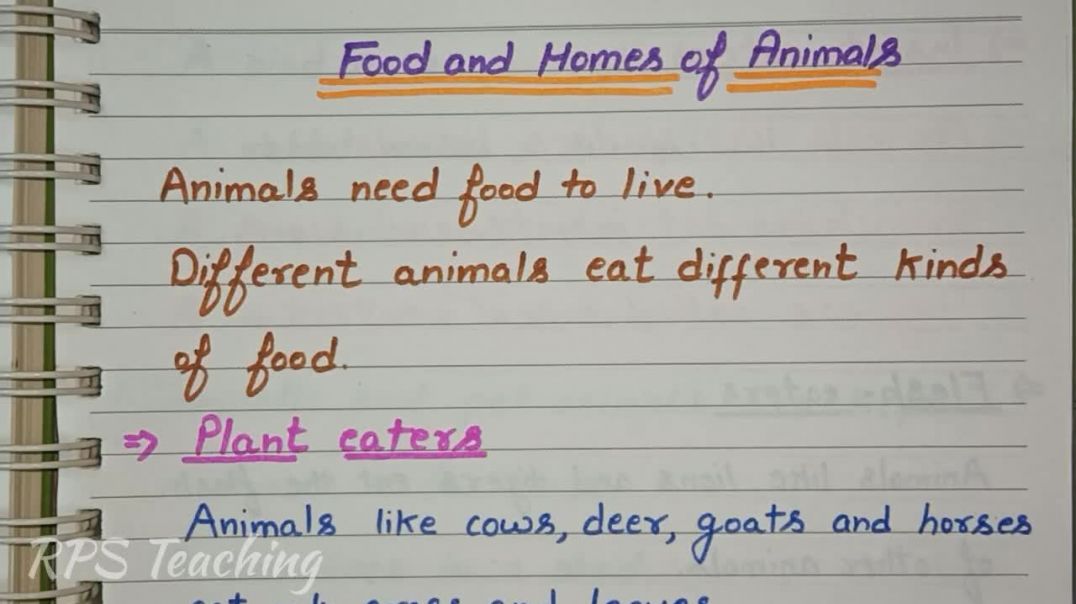 Food and Homes of Animals
Animals need food to live.
Different animals eat different kinds
of food.
⇒ Plant eaters
Animals like cows, deer, goats and horses
RPS Teaching
and leaves